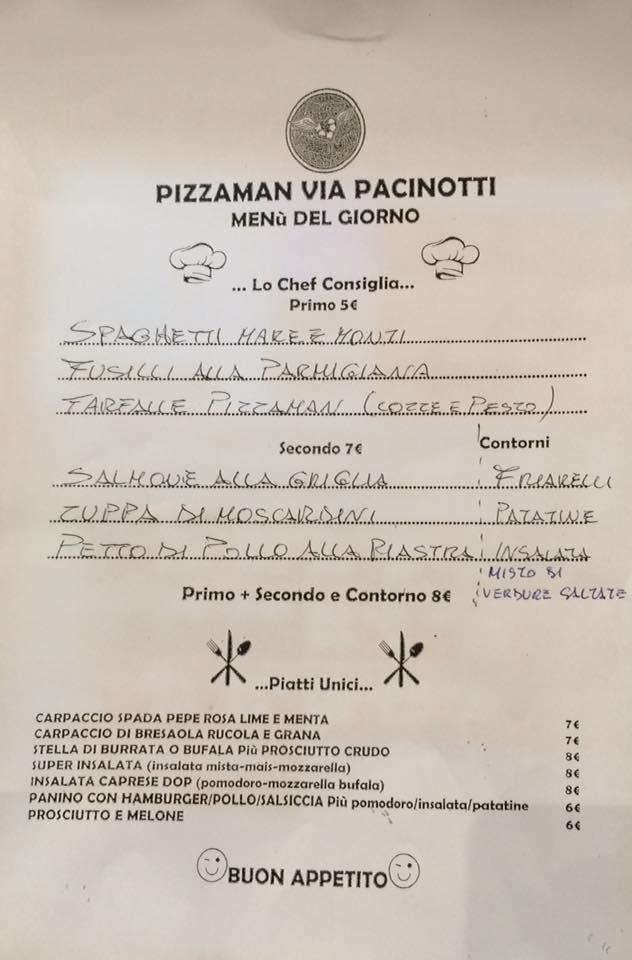 PIZZAMAN VIA PACINOTTI
MENù DEL GIORNO
... Lo Chef Consiglia...
Primo 5€
SPAGHETTI MARE E MONTI
FUSILLI ALLA PARMIGIANA
FARFALLE PIZZAMAN (COZZE E PESTO)
Secondo 7€ Contorni
SALMONE ALLA GRIGLIA FRIARELLI
ZUPPA DI MOSCARDINI PATATINE
PETTO DI POLLO ALLA PIASTRA INSALATA
MISTO DI
Primo + Secondo e Contorno 8€ VERDURE SALTATE
...Piatti Unici...
CARPACCIO SPADA PEPE ROSA LIME E MENTA 7€
CARPACCIO DI BRESAOLA RUCOLA E GRANA 7€
STELLA DI BURRATA O BUFALA Più PROSCIUTTO CRUDO 8€
SUPER INSALATA (insalata mista-mais-mozzarella) 8€
INSALATA CAPRESE DOP (pomodoro-mozzarella bufala) 8€
PANINO CON HAMBURGER/POLLO/SALSICCIA Più pomodoro/insalata/patatine 6€
PROSCIUTTO E MELONE 6€
BUON APPETITO